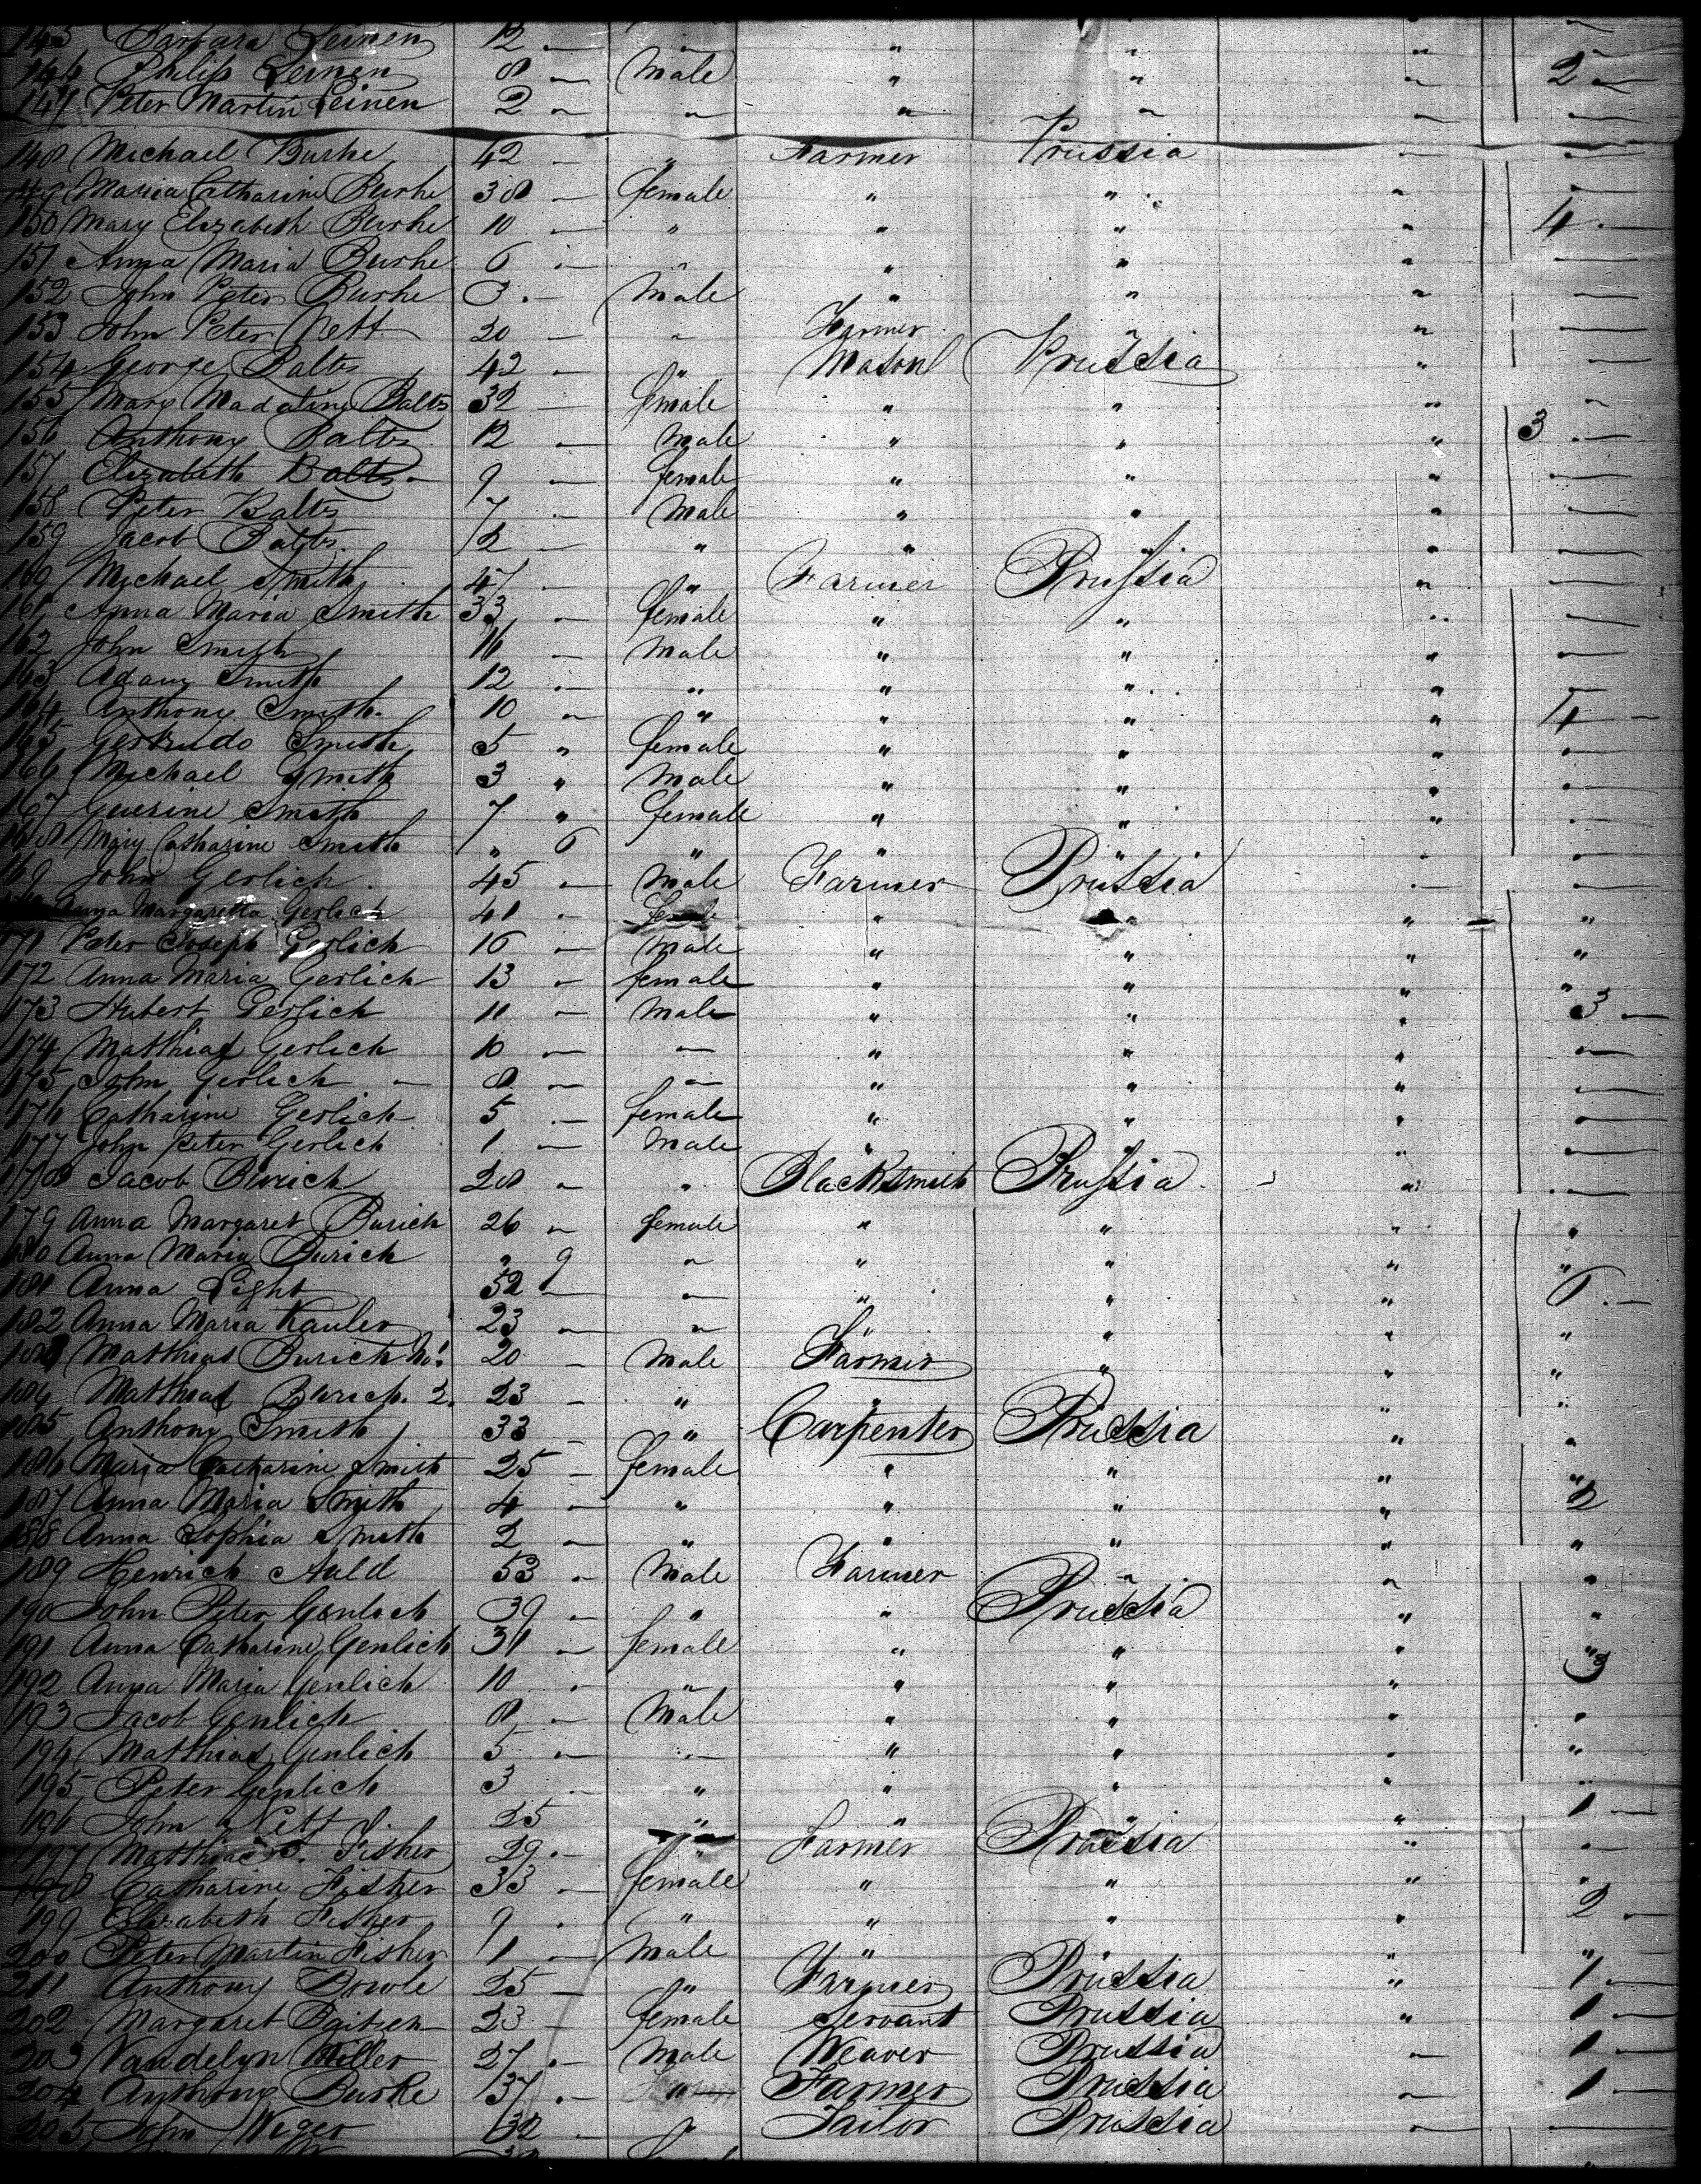 145 Barbara Leinen 12 — " " " " —
146 Philip Leinen 8 — Male " " " 2 —
147 Peter Martin Leinen 2 — " " " — —
148 Michael Burke 42 — " Farmer Prussia — —
149 Maria Catharine Burke 38 — female " " " —
150 Mary Elizabeth Burke 10 — " " " " 4 —
151 Anna Maria Burke 6 — " " " " —
152 John Peter Burke 3 — Male " " " —
153 John Peter Nett 20 — " Farmer " " —
154 George Balts 42 — " Mason Prussia " —
155 Mary Madaline Balts 32 — female " " " —
156 Anthony Balts 12 — Male " " " 3 —
157 Elizabeth Balts 9 — female " " " —
158 Peter Balts 7 — Male " " " —
159 Jacob Balts 2 — " " " " —
160 Michael Smith 47 — " Farmer Prussia " —
161 Anna Maria Smith 33 — female " " " —
162 John Smith 16 — Male " " " —
163 Adam Smith 12 — " " " " —
164 Anthony Smith 10 — " " " " 4 —
165 Gertrudo Smith 5 " female " " "
166 Michael Smith 3 " Male " " "
167 Smith 7 " female " " "
168 Mary Catharine Smith " 6 " " "
169 John Gerlich 45 — Male Farmer Prussia — —
Anna Margaretta Gerlich 41 — " " " "
171 Peter Joseph Gerlich 16 — Male " " " "
172 Anna Maria Gerlich 13 — female " " " "
173 Hubert Gerlich 11 — Male " " " 3 —
174 Matthias Gerlich 10 — — " " " —
175 John Gerlich — 8 — — " " " —
176 Catharine Gerlich 5 — female " " " —
177 John Peter Gerlich 1 — Male " " " —
178 Jacob Burich 28 — " Blacksmith Prussia " —
179 Anna Margaret Burich 26 — female " " " "
180 Anna Maria Burich " 9 — " " " "
181 Anna Light 52 — — " " " 6 —
182 Anna Maria Kauler 23 — — " " " "
183 Matthias Burich No 1. 20 — Male Farmer " " "
184 Matthias Burich. 2. 23 — " " " "
185 Anthony Smith 33 — " Carpenter Prussia " "
186 Maria Catharine Smith 25 — female " " " "
187 Anna Maria Smith 4 — " " " " 2
188 Anna Sophia Smith 2 — " " " " "
189 Henrich Auld 53 — Male Farmer " " "
190 John Peter Genlich 39 — " " Prussia " "
191 Anna Catharine Genlich 31 — female " " " 3
192 Anna Maria Genlich 10 — " " " "
193 Jacob Genlich 8 — Male " " " "
194 Matthias Genlich 5 — — " " " "
195 Peter Genlich 3 " " " " "
196 John Nett 25 " " " " 1 —
197 Matthias Fisher 29 — " Farmer Prussia " —
198 Catharine Fisher 33 — female " " " "
199 Elizabeth Fisher 9 — " " " " 2 —
200 Peter Martin Fisher 1 — Male " " " "
211 Anthony 25 — " Farmer Prussia " 1 —
202 Margaret 23 — female Servant Prussia " 1 —
203 Vandelyn Miller 27 — Male Weaver Prussia — 1 —
204 Anthony Burke 37 — Farmer Prussia — 1 —
205 John Weger 32 — " Tailor Prussia — —